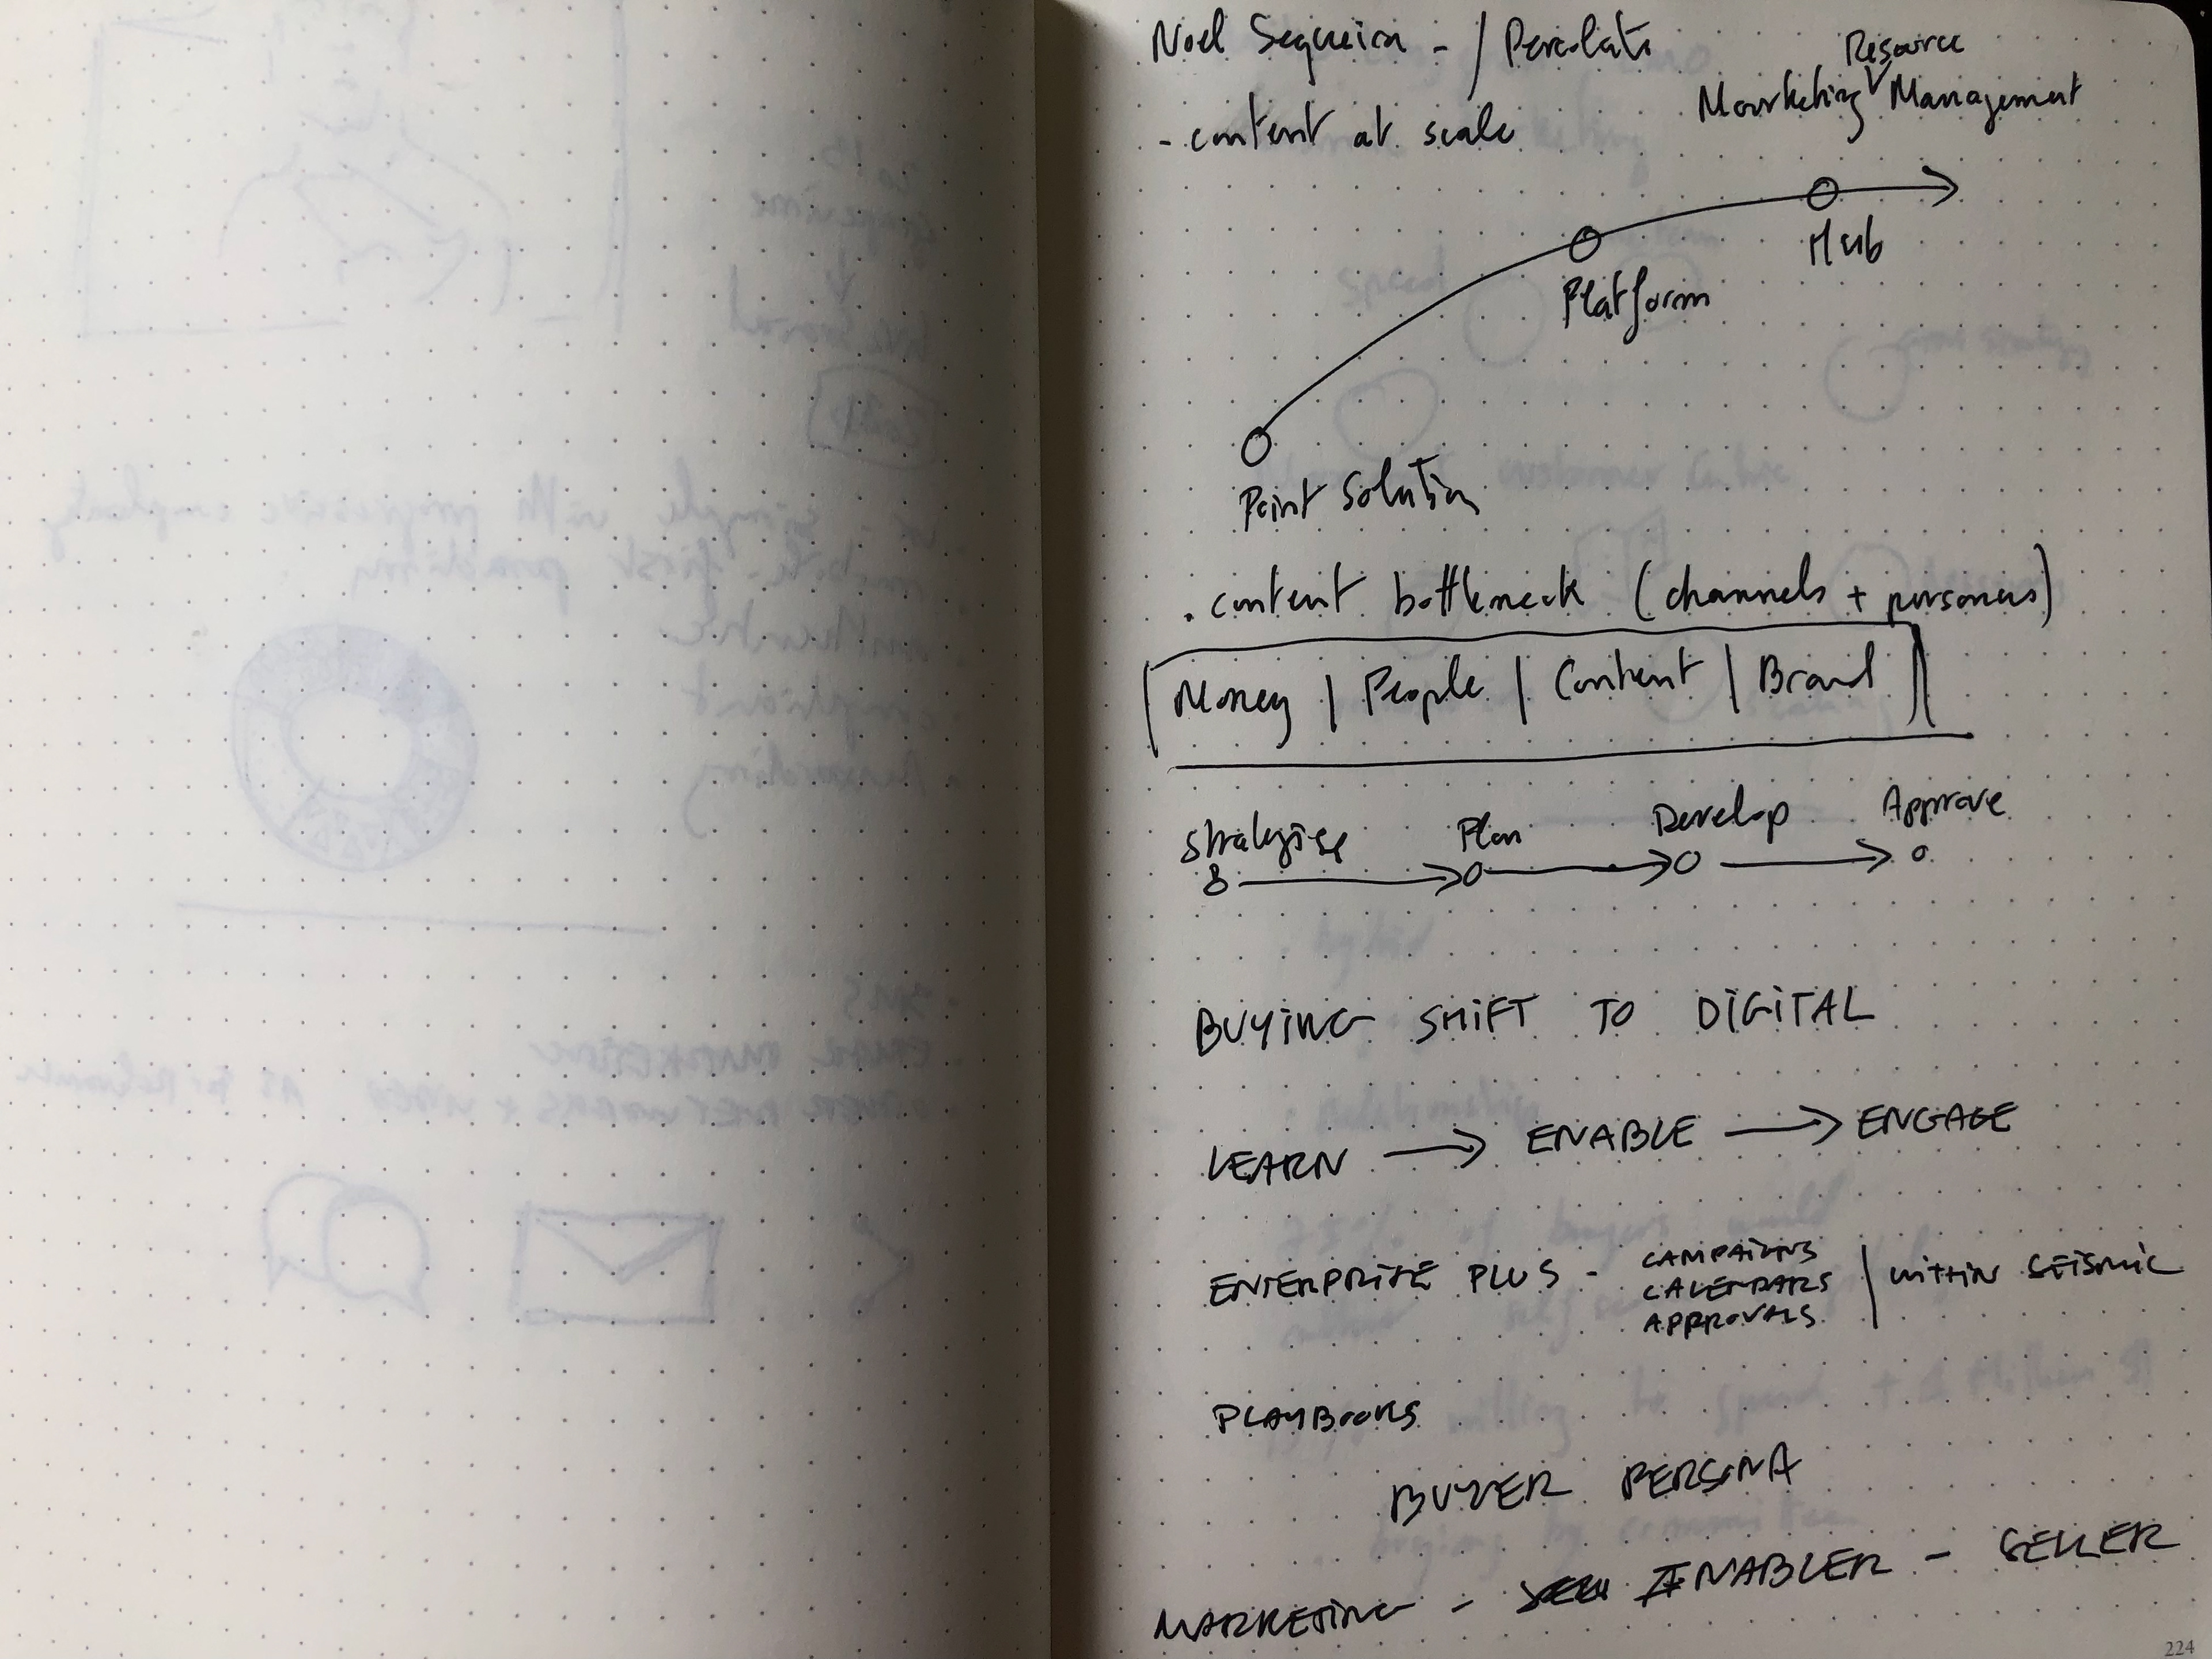 Noel Sequeira - / Percolate
Resource
Marketing Management
- content at scale
Hub
Platform
Point Solution
. content bottleneck (channels + personas)
Money | People | Content | Brand
Strategise Plan Develop Approve
BUYING SHIFT TO DIGITAL
LEARN → ENABLE → ENGAGE
ENTERPRISE PLUS - CAMPAIGNS
CALENDARS | WITHIN SEISMIC
APPROVALS
PLAYBOOKS
BUYER PERSONA
MARKETING - ENABLER - SELLER
224